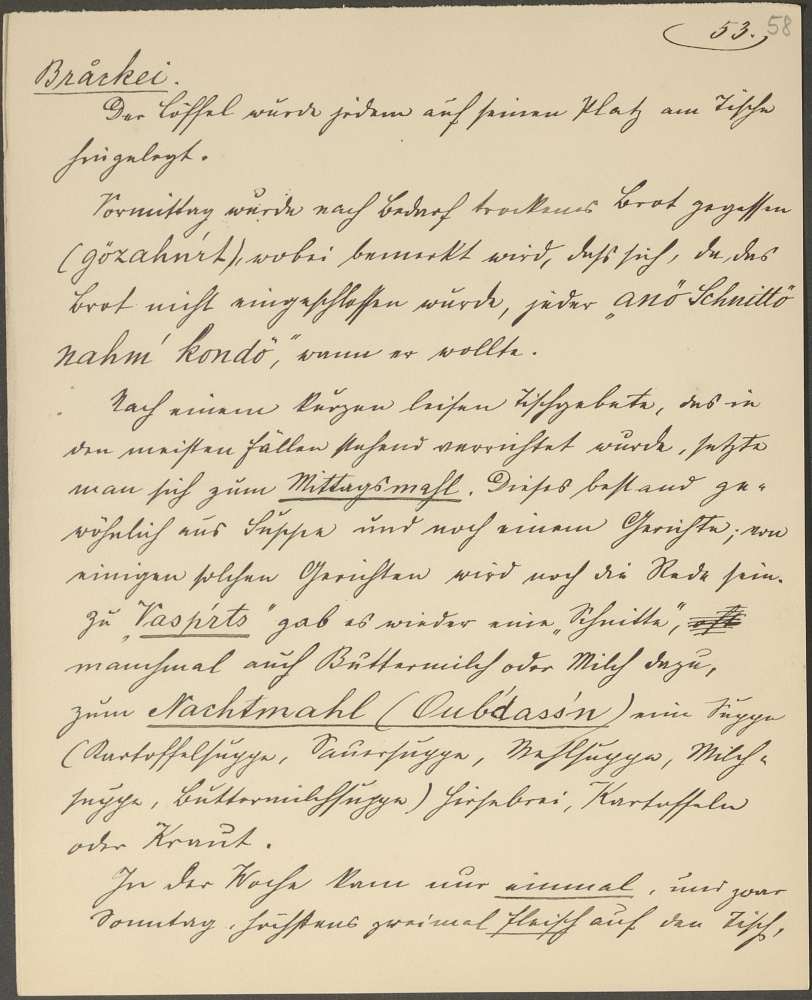 53. 58
Bråckei.
Der Löffel wurde jedem auf seinen Platz am Tische
hingelegt.
Vormittag wurde nach Bedarf trockenes Brot gegessen
(gözahnrt), wobei bemerkt wird, daß sich, da das
Brot nicht eingeschlossen wurde, jeder „anö Schnittö
nahm' kondö," wann er wollte.
Nach einem kurzen leisen Tischgebete, das in
den meisten Fällen stehend verrichtet wurde, setzte
man sich zum Mittagsmahl. Dieses bestand ge-
wöhnlich aus Suppe und noch einem Gerichte; von
einigen solchen Gerichten wird noch die Rede sein.
Zu „Vasp'rts" gab es wieder eine „Schnitte", oft
manchmal auch Buttermilch oder Milch dazu,
zum Nachtmahl (Oub'dass'n) eine Suppe
(Kartoffelsuppe, Sauersuppe, Mehlsuppe, Milch-
suppe, Buttermilchsuppe) Hirsebrei, Kartoffeln
oder Kraut.
In der Woche kam nur einmal, und zwar
Sonntag, höchstens zweimal Fleisch auf den Tisch,